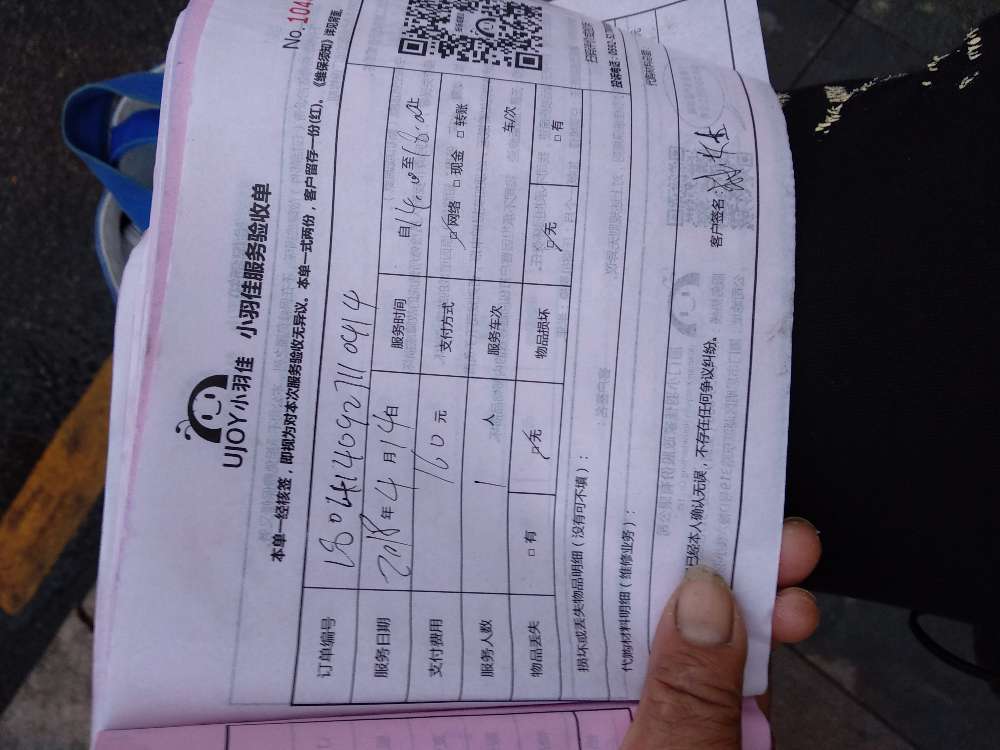 No. 104
UJOY小羽佳 小羽佳服务验收单
本单一经核签，即视为对本次服务验收无异议。本单一式两份，客户留存一份(红)。《维保须知》详见背面。
订单编号
服务日期 2018年4月14日 服务时间 自14:00至18:00止
支付费用 160元 支付方式 ☑网络 □现金 □转账
服务人数 1人 服务车次 车/次
物品丢失 □有 ☑无 物品损坏 ☑无 □有
损坏或丢失物品明细（没有可不填）：
代购材料明细（维修业务）：
已经本人确认无误，不存在任何争议纠纷。 客户签名：